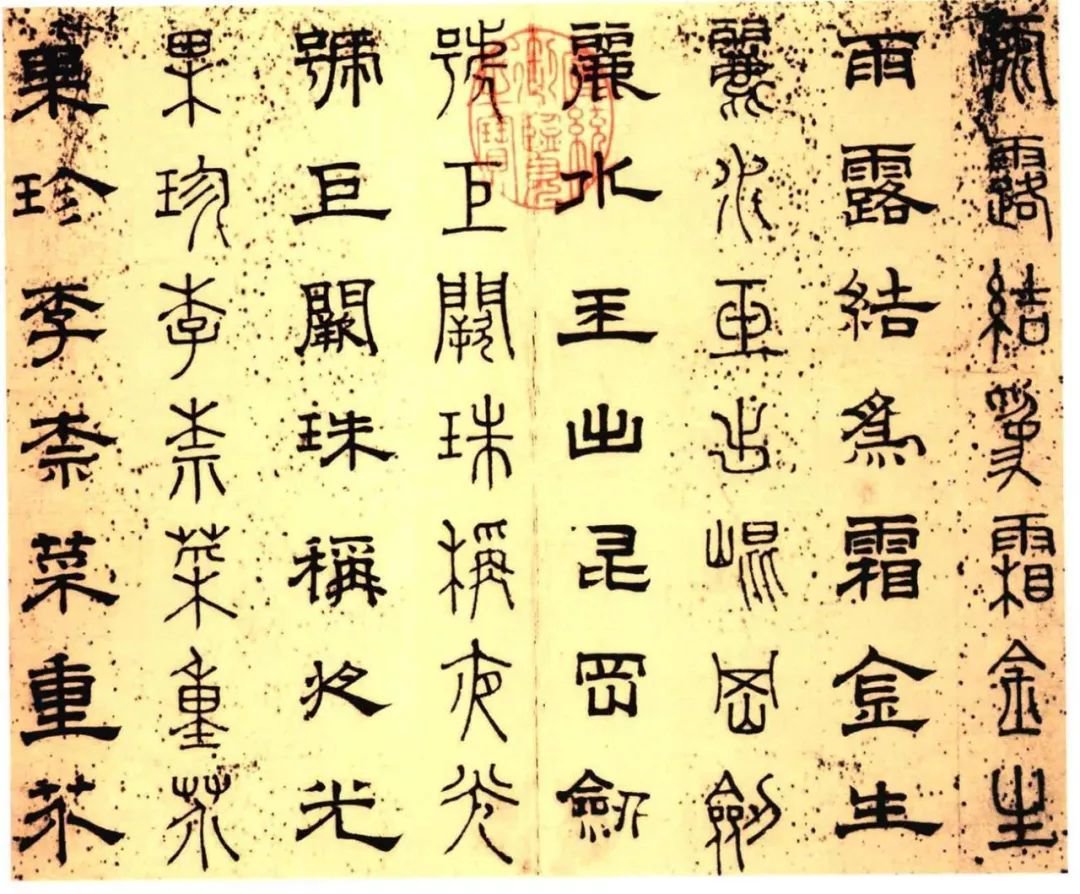 雨露結為霜金生
雨露結為霜金生
麗水玉出崐岡劍
麗水玉出昆岡劍
號巨闕珠稱夜光
號巨闕珠稱夜光
果珍李柰菜重芥
果珍李柰菜重芥